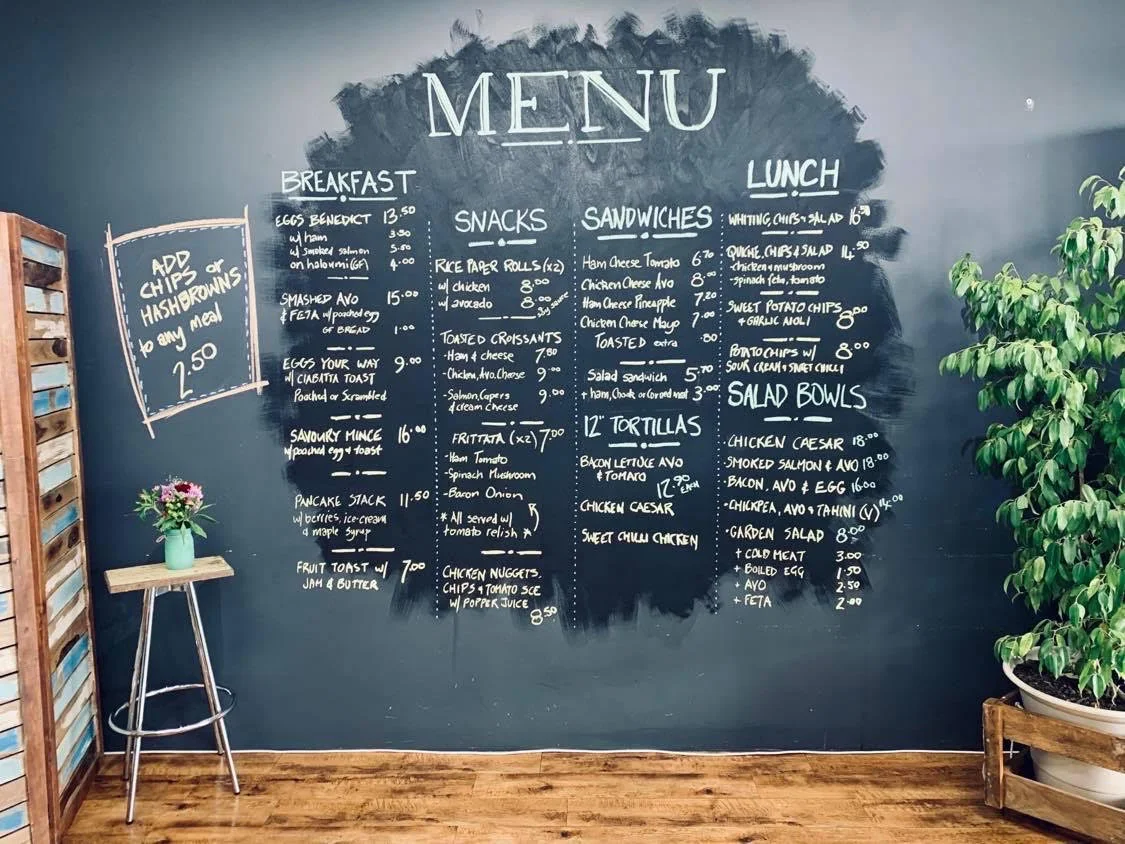 MENU
ADD
CHIPS or
HASHBROWNS
to any meal
2.50
BREAKFAST
EGGS BENEDICT 13.50
w/ ham 3.50
w/ smoked salmon 5.50
on haloumi (GF) 4.00
SMASHED AVO 15.00
& FETA w/ poached egg
GF BREAD 1.00
EGGS YOUR WAY 9.00
w/ CIABATTA TOAST
Poached or Scrambled
SAVOURY MINCE 16.00
w/ poached egg & toast
PANCAKE STACK 11.50
w/ berries, ice-cream
& maple syrup
FRUIT TOAST w/ 7.00
JAM & BUTTER
SNACKS
RICE PAPER ROLLS (x2)
w/ chicken 8.00
w/ avocado 8.00
TOASTED CROISSANTS
- Ham & cheese 7.80
- Chicken, Avo, Cheese 9.00
- Salmon, Capers 9.00
& cream cheese
FRITTATA (x2) 7.00
- Ham Tomato
- Spinach Mushroom
- Bacon Onion
* All served w/
tomato relish *
CHICKEN NUGGETS,
CHIPS & TOMATO SCE
W/ POPPER JUICE
8.50
SANDWICHES
Ham Cheese Tomato 6.70
Chicken Cheese Avo 8.00
Ham Cheese Pineapple 7.20
Chicken Cheese Mayo 7.00
TOASTED extra .80
Salad sandwich 5.70
+ ham, Chook or Corned meat 3.00
12" TORTILLAS
BACON LETTUCE AVO
& TOMATO
12.95 EACH
CHICKEN CAESAR
SWEET CHILLI CHICKEN
LUNCH
WHITING, CHIPS & SALAD 16.50
QUICHE, CHIPS & SALAD 14.50
- chicken & mushroom
- spinach, feta, tomato
SWEET POTATO CHIPS
& GARLIC AIOLI 8.00
POTATO CHIPS w/ 8.00
SOUR CREAM & SWEET CHILLI
SALAD BOWLS
- CHICKEN CAESAR 18.00
- SMOKED SALMON & AVO 18.00
- BACON, AVO & EGG 16.00
- CHICKPEA, AVO & TAHINI (V) 14.00
- GARDEN SALAD 8.00
+ COLD MEAT 3.00
+ BOILED EGG 1.50
+ AVO 2.50
+ FETA 2.00